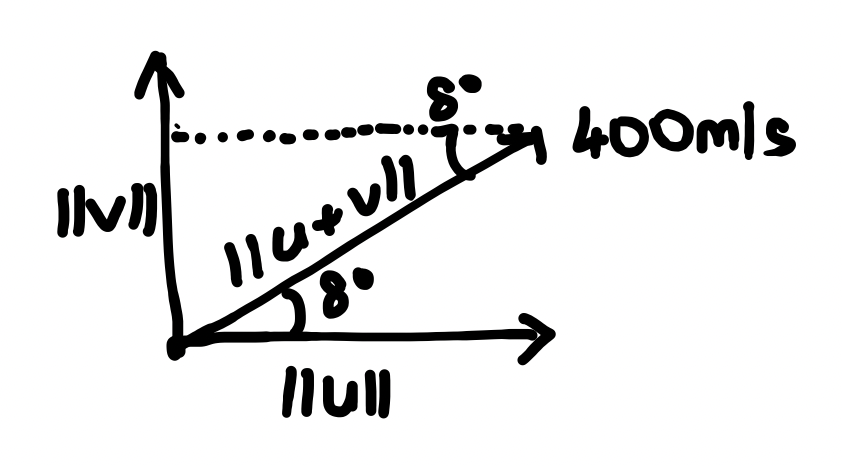 8°
400m/s
||v||
||u+v||
8°
||u||